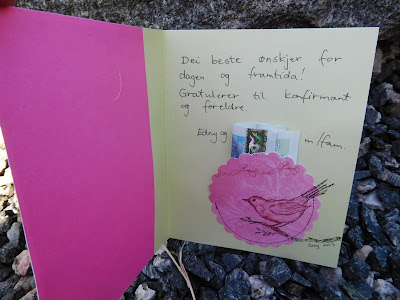 Dei beste ønskjer for
dagen og framtida!
Gratulerer til konfirmant
og foreldre.
Edny og
m/fam.